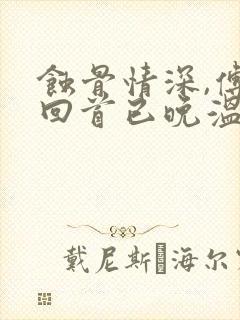 蚀骨情深,傅
回首已晚温
戴尼斯·海尔